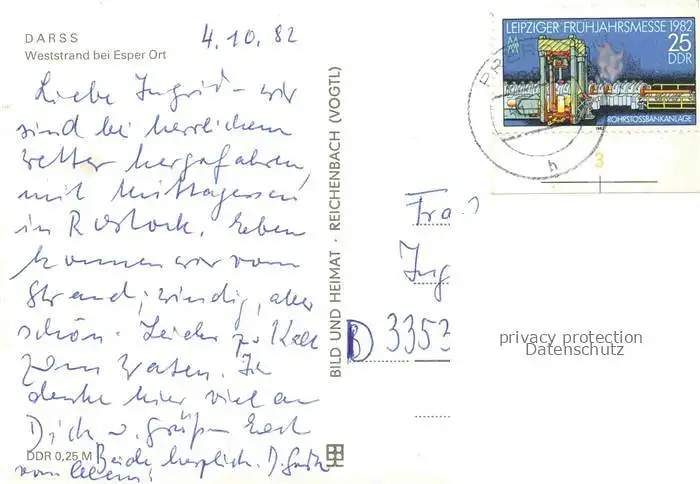 DARSS
Weststrand bei Esper Ort
4.10.82
Liebe Ingrid – wir
sind bei herrlichem
Wetter hergefahren,
mit Mittagessen
in Rostock. Eben
kommen wir vom
Strand; windig, aber
schön. Leider zu kalt
zum Waten. Ich
denke hier viel an
Dich u. grüße Euch
Beide herzlich. D.
von
DDR 0,25 M
BILD UND HEIMAT · REICHENBACH (VOGTL)
LEIPZIGER FRÜHJAHRSMESSE 1982
25
DDR
ROHRSTOSSBANKANLAGE
h
3
Fra
Ing
3353
privacy protection
Datenschutz